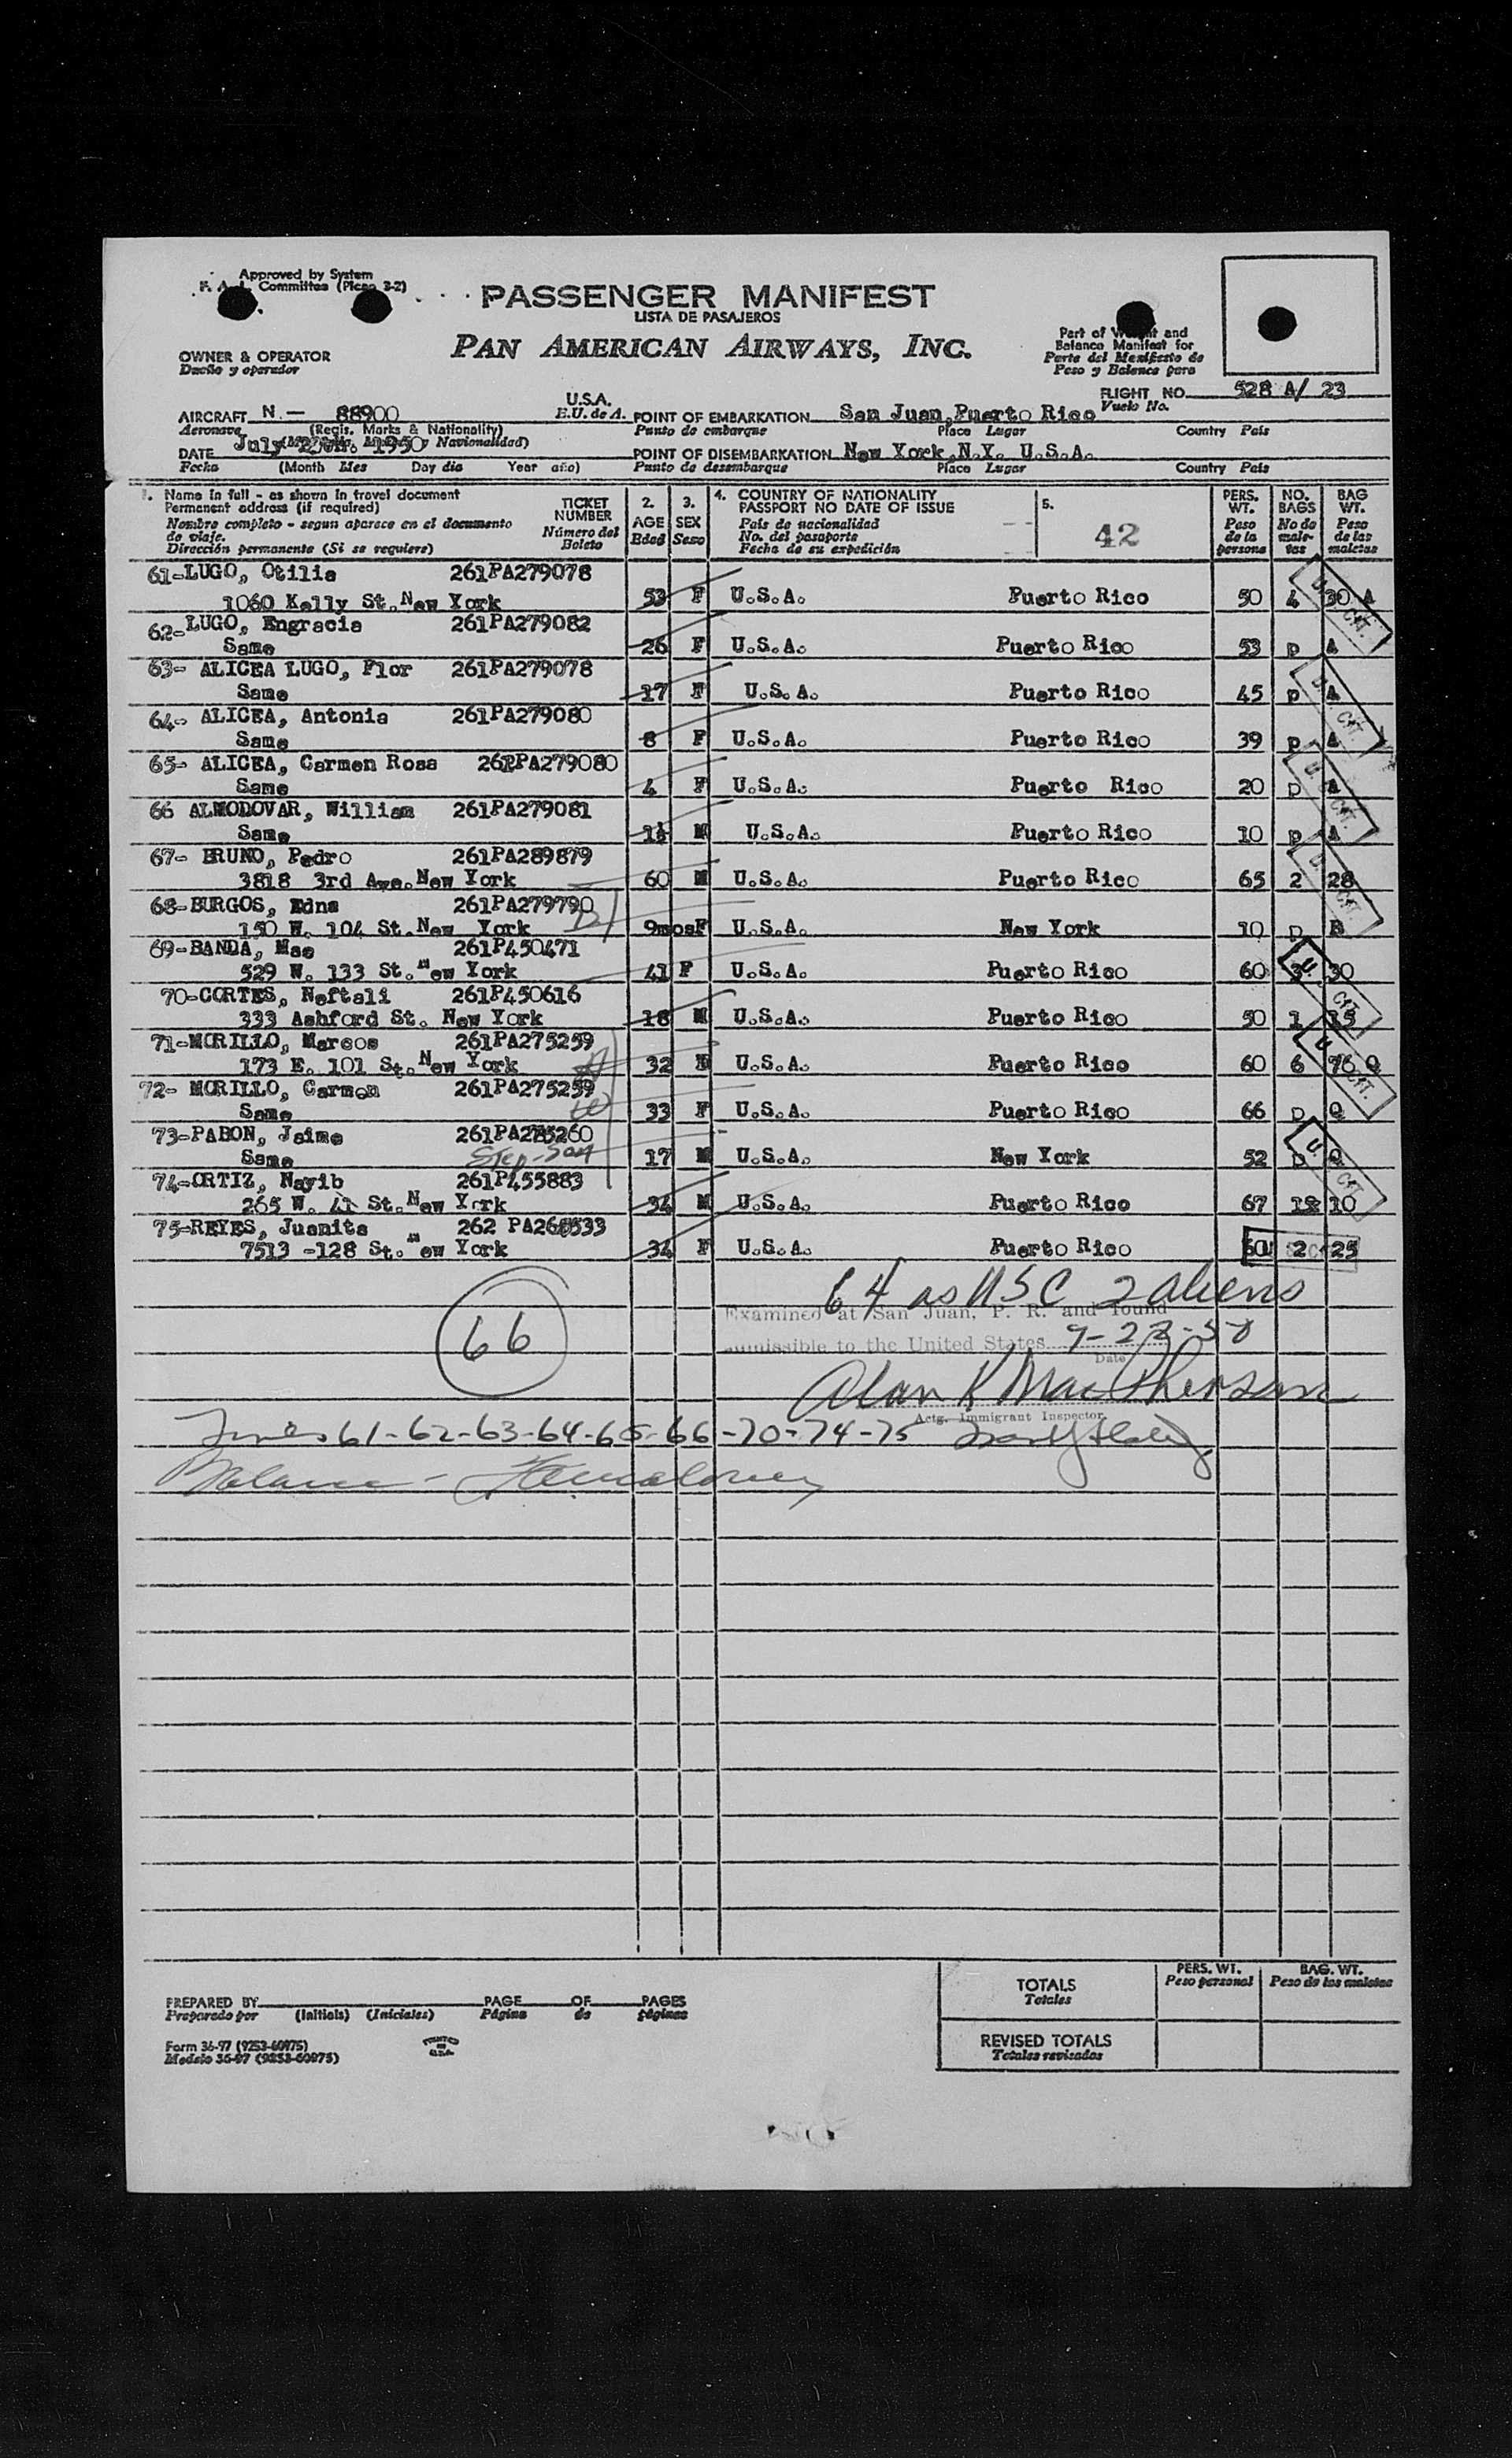 Approved by System
F. A. L. Committee (Picao 3-2)
PASSENGER MANIFEST
LISTA DE PASAJEROS
PAN AMERICAN AIRWAYS, INC.
Part of Weight and
Balance Manifest for
Parte del Manifiesto de
Peso y Balance para
OWNER & OPERATOR
Dueño y operador
FLIGHT NO. 528 A/ 23
Vuelo No.
AIRCRAFT N.— 88900 U.S.A.
Aeronave (Regis. Marks & Nationality) E.U. de A.
POINT OF EMBARKATION San Juan, Puerto Rico
Punto de embarque Place Lugar Country País
DATE July 1950
Fecha (Month Mes Day día Year año)
POINT OF DISEMBARKATION New York, N.Y. U.S.A.
Punto de desembarque Place Lugar Country País
1. Name in full - as shown in travel document
Permanent address (if required)
Nombre completo - segun aparece en el documento
de viaje.
Dirección permanente (Si se requiere)
TICKET
NUMBER
Número del
Boleto
2.
AGE
Edad
3.
SEX
Sexo
4. COUNTRY OF NATIONALITY
PASSPORT NO DATE OF ISSUE
País de nacionalidad
No. del pasaporte
Fecha de su expedición
5.
42
PERS.
WT.
Peso
de la
persona
NO.
BAGS
No de
male-
tas
BAG
WT.
Peso
de las
maletas
61-LUGO, Otilia 261PA279078
1060 Kelly St. New York 53 F U.S.A. Puerto Rico 50 4 30 A
62-LUGO, Engracia 261PA279082
Same 26 F U.S.A. Puerto Rico 53 p A
63- ALICEA LUGO, Flor 261PA279078
Same 17 F U.S.A. Puerto Rico 45 p A
64- ALICEA, Antonia 261PA279080
Same 8 F U.S.A. Puerto Rico 39 p A
65- ALICEA, Carmen Rosa 261PA279080
Same 4 F U.S.A. Puerto Rico 20 p A
66 ALMODOVAR, William 261PA279081
Same M U.S.A. Puerto Rico 10 p A
67- BRUNO, Pedro 261PA289879
3818 3rd Ave. New York 60 M U.S.A. Puerto Rico 65 2 28
68-BURGOS, Edna 261PA279790
150 W. 104 St. New York 9mos F U.S.A. New York 10 p B
69-BANDA, Mae 261P450471
529 W. 133 St. New York 41 F U.S.A. Puerto Rico 60 3 30
70-CORTES, Neftali 261P450616
333 Ashford St. New York 18 M U.S.A. Puerto Rico 50 1 15
71-MORILLO, Marcos 261PA275259
173 E. 101 St. New York 32 U.S.A. Puerto Rico 60 6 76 Q
72- MORILLO, Carmen 261PA275259
Same 33 F U.S.A. Puerto Rico 66 p Q
73-PABON, Jaime 261PA275260
Same Step-son 17 M U.S.A. New York 52 p Q
74-ORTIZ, Nayib 261P455883
265 W. 41 St. New York 34 M U.S.A. Puerto Rico 67 10
75-REYES, Juanita 262 PA268533
7513 -128 St. New York 34 F U.S.A. Puerto Rico 60 2 25
64 as USC 2 aliens
Examined at San Juan, P. R. and found
admissible to the United States 7-23-50
Date
66
Alan K MacPherson
Actg. Immigrant Inspector
Lines 61-62-63-64-65-66-70-74-75
Balance -
PREPARED BY PAGE OF PAGES
Preparado por (Initials) (Iniciales) Página de páginas
Form 36-97 (9253-60975)
Modelo 36-97 (9253-60975)
PRINTED
IN
U.S.A.
PERS. WT.
Peso personal
BAG. WT.
Peso de las maletas
TOTALS
Totales
REVISED TOTALS
Totales revisados